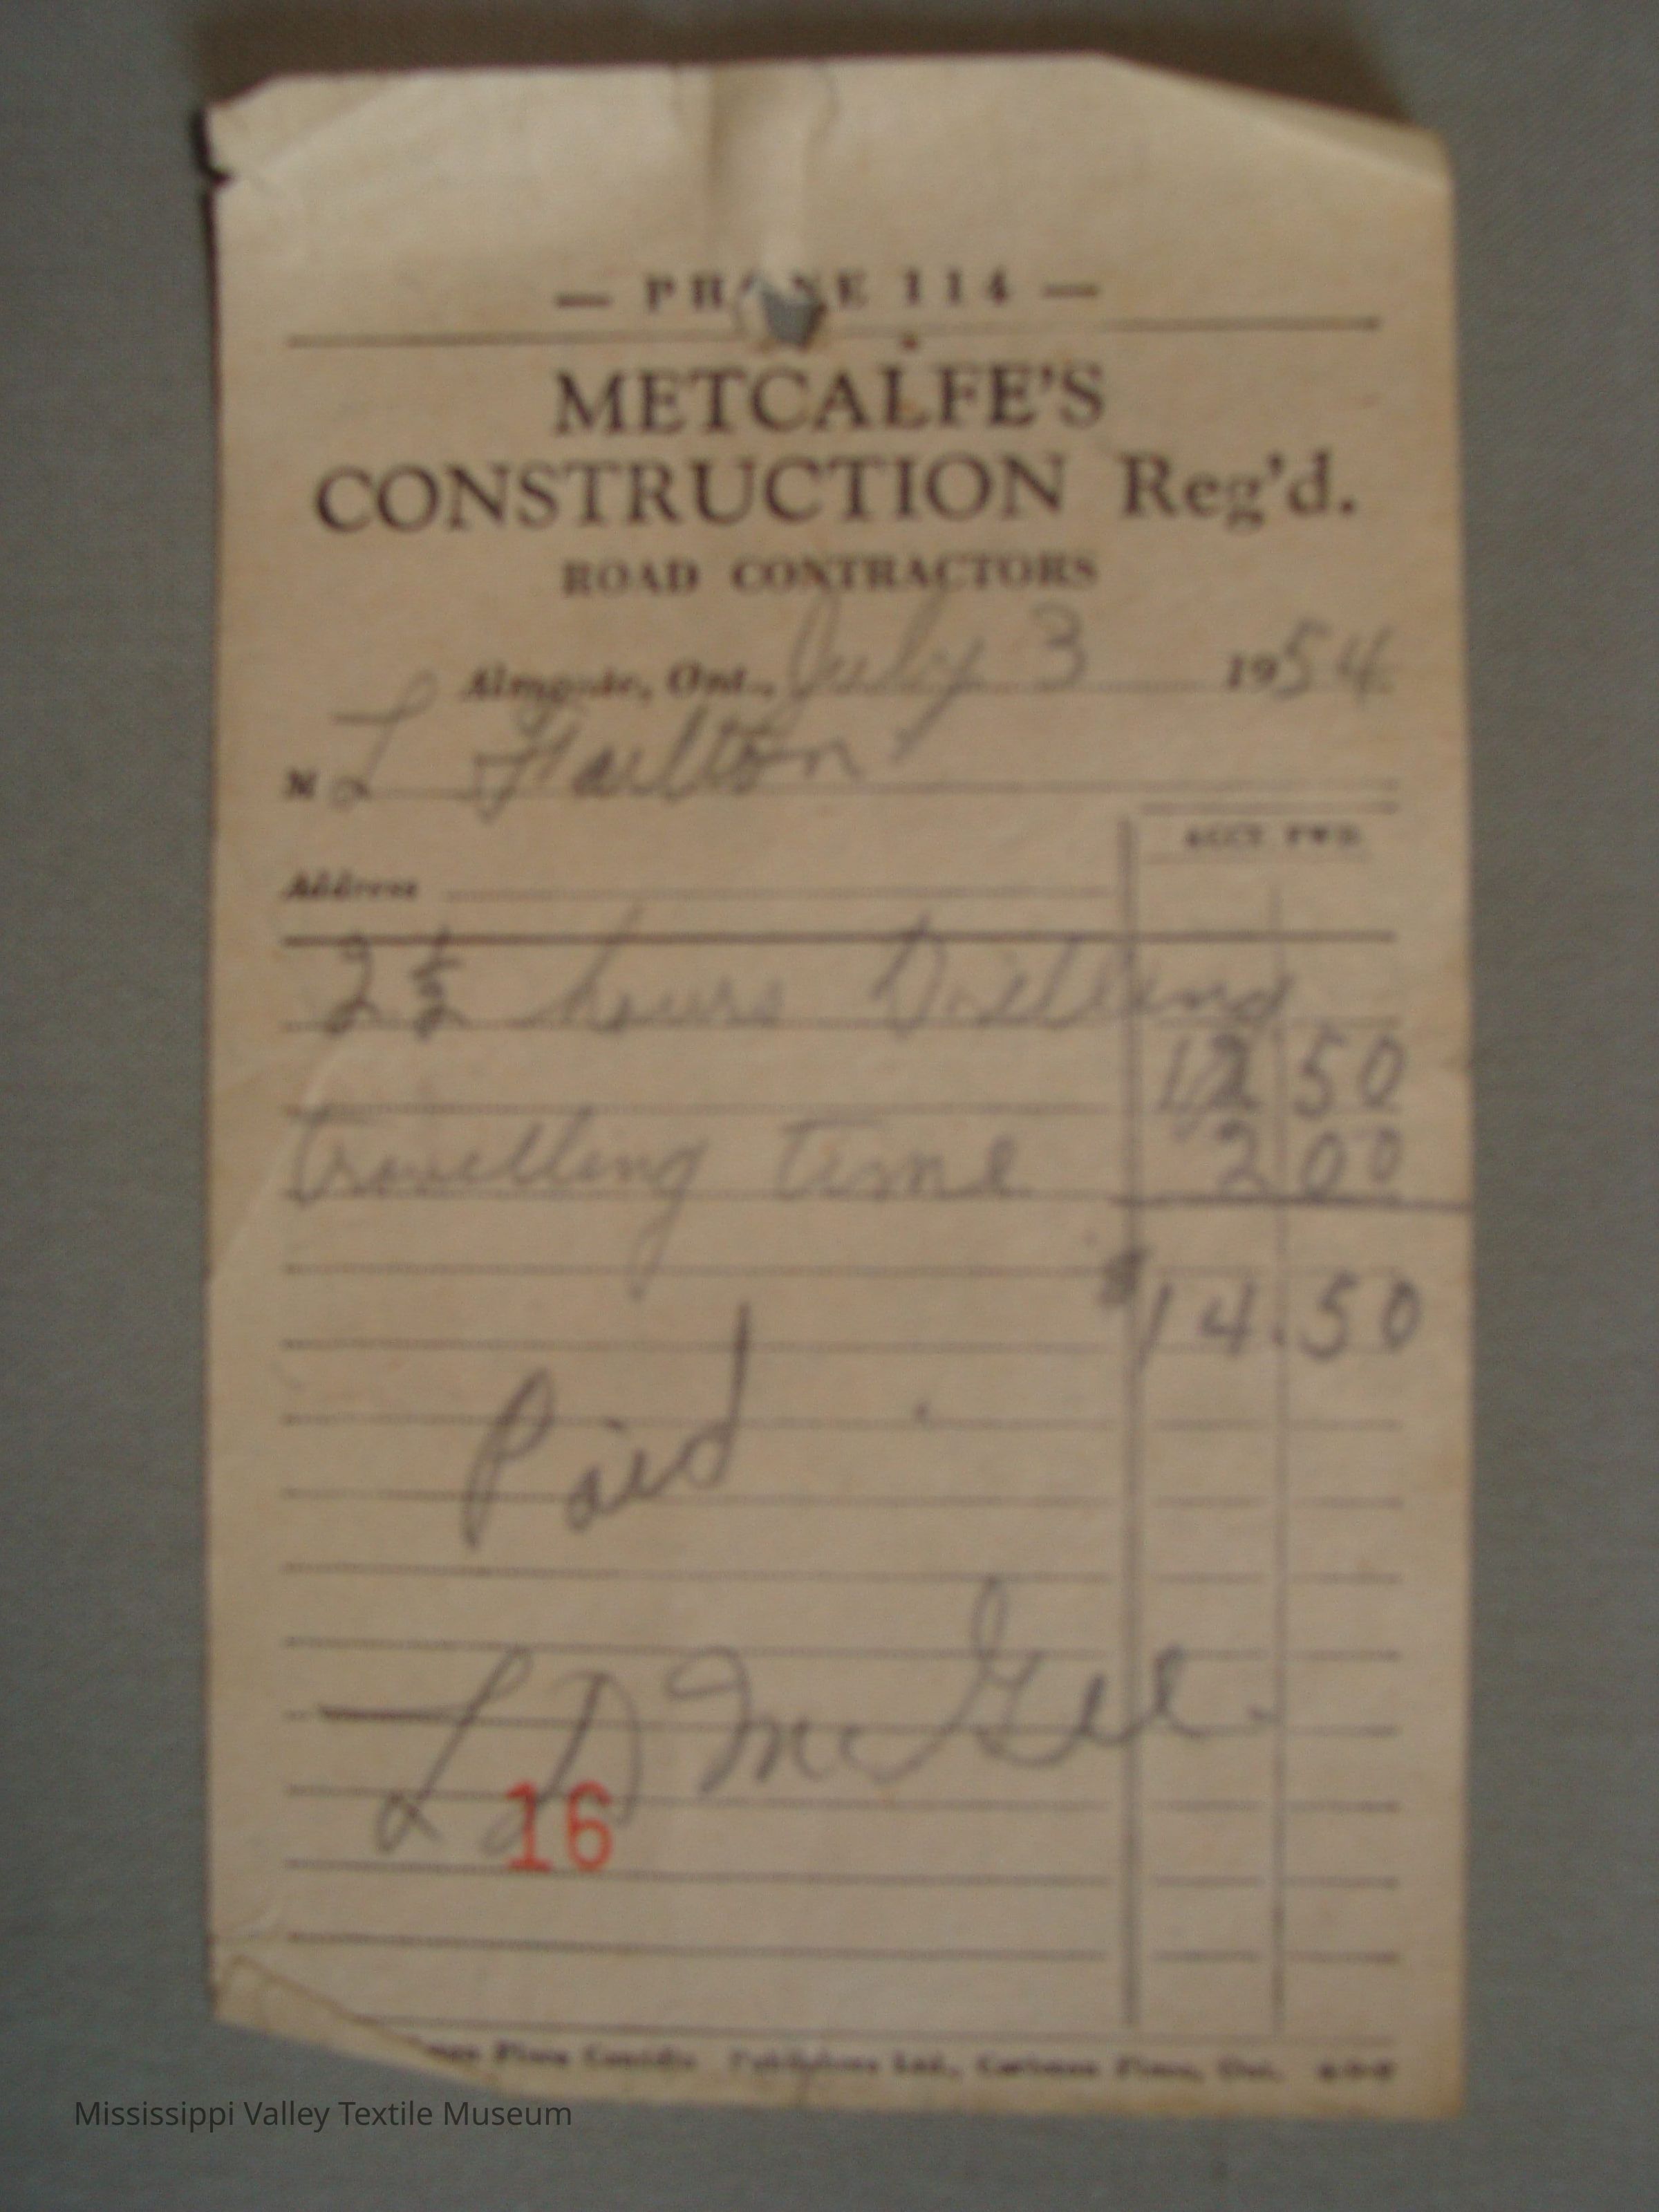 — PHONE 114 —
METCALFE'S
CONSTRUCTION Reg'd.
ROAD CONTRACTORS
Almonte, Ont., July 3 1954
M L Fulton
ACCT. FWD.
Address
2 1/2 hours Drilling
12 50
travelling time 2 00
$14.50
Paid
L D McGee.
16
Place Canadian Publishers Ltd., Carleton Place, Ont.
Mississippi Valley Textile Museum